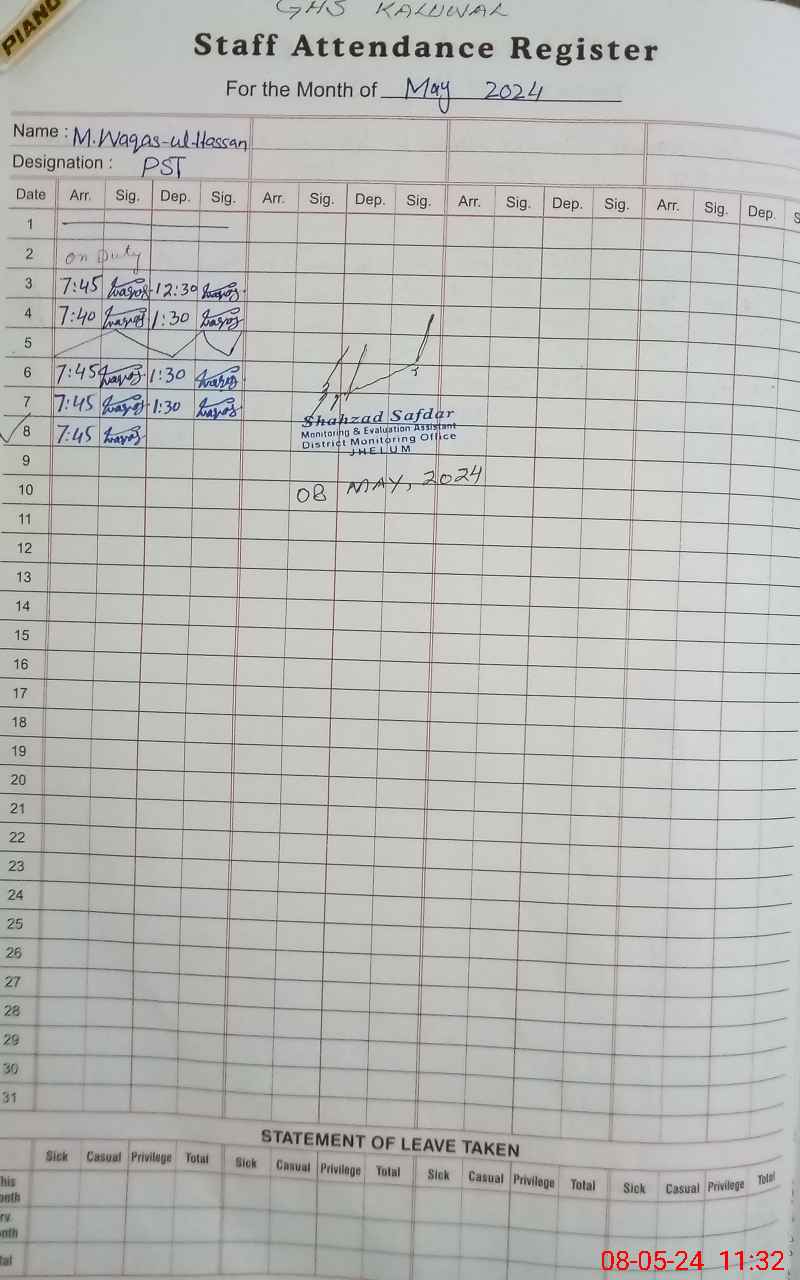 PIANO
GHS KALUWAL
Staff Attendance Register
For the Month of May 2024
Name : M.Waqas-ul-Hassan
Designation : PST
Date Arr. Sig. Dep. Sig. Arr. Sig. Dep. Sig. Arr. Sig. Dep. Sig. Arr. Sig. Dep. S
1
2 on Duty
3 7:45 Waqas 12:30 Waqas
4 7:40 Waqas 1:30 Waqas
5
6 7:45 Waqas 1:30 Waqas
7 7:45 Waqas 1:30 Waqas
8 7:45 Waqas
Shahzad Safdar
Monitoring & Evaluation Assistant
District Monitoring Office
JHELUM
9
10 08 MAY, 2024
11
12
13
14
15
16
17
18
19
20
21
22
23
24
25
26
27
28
29
30
31
STATEMENT OF LEAVE TAKEN
Sick Casual Privilege Total Sick Casual Privilege Total Sick Casual Privilege Total Sick Casual Privilege Total
his
onth
rv.
nth
tal
08-05-24 11:32